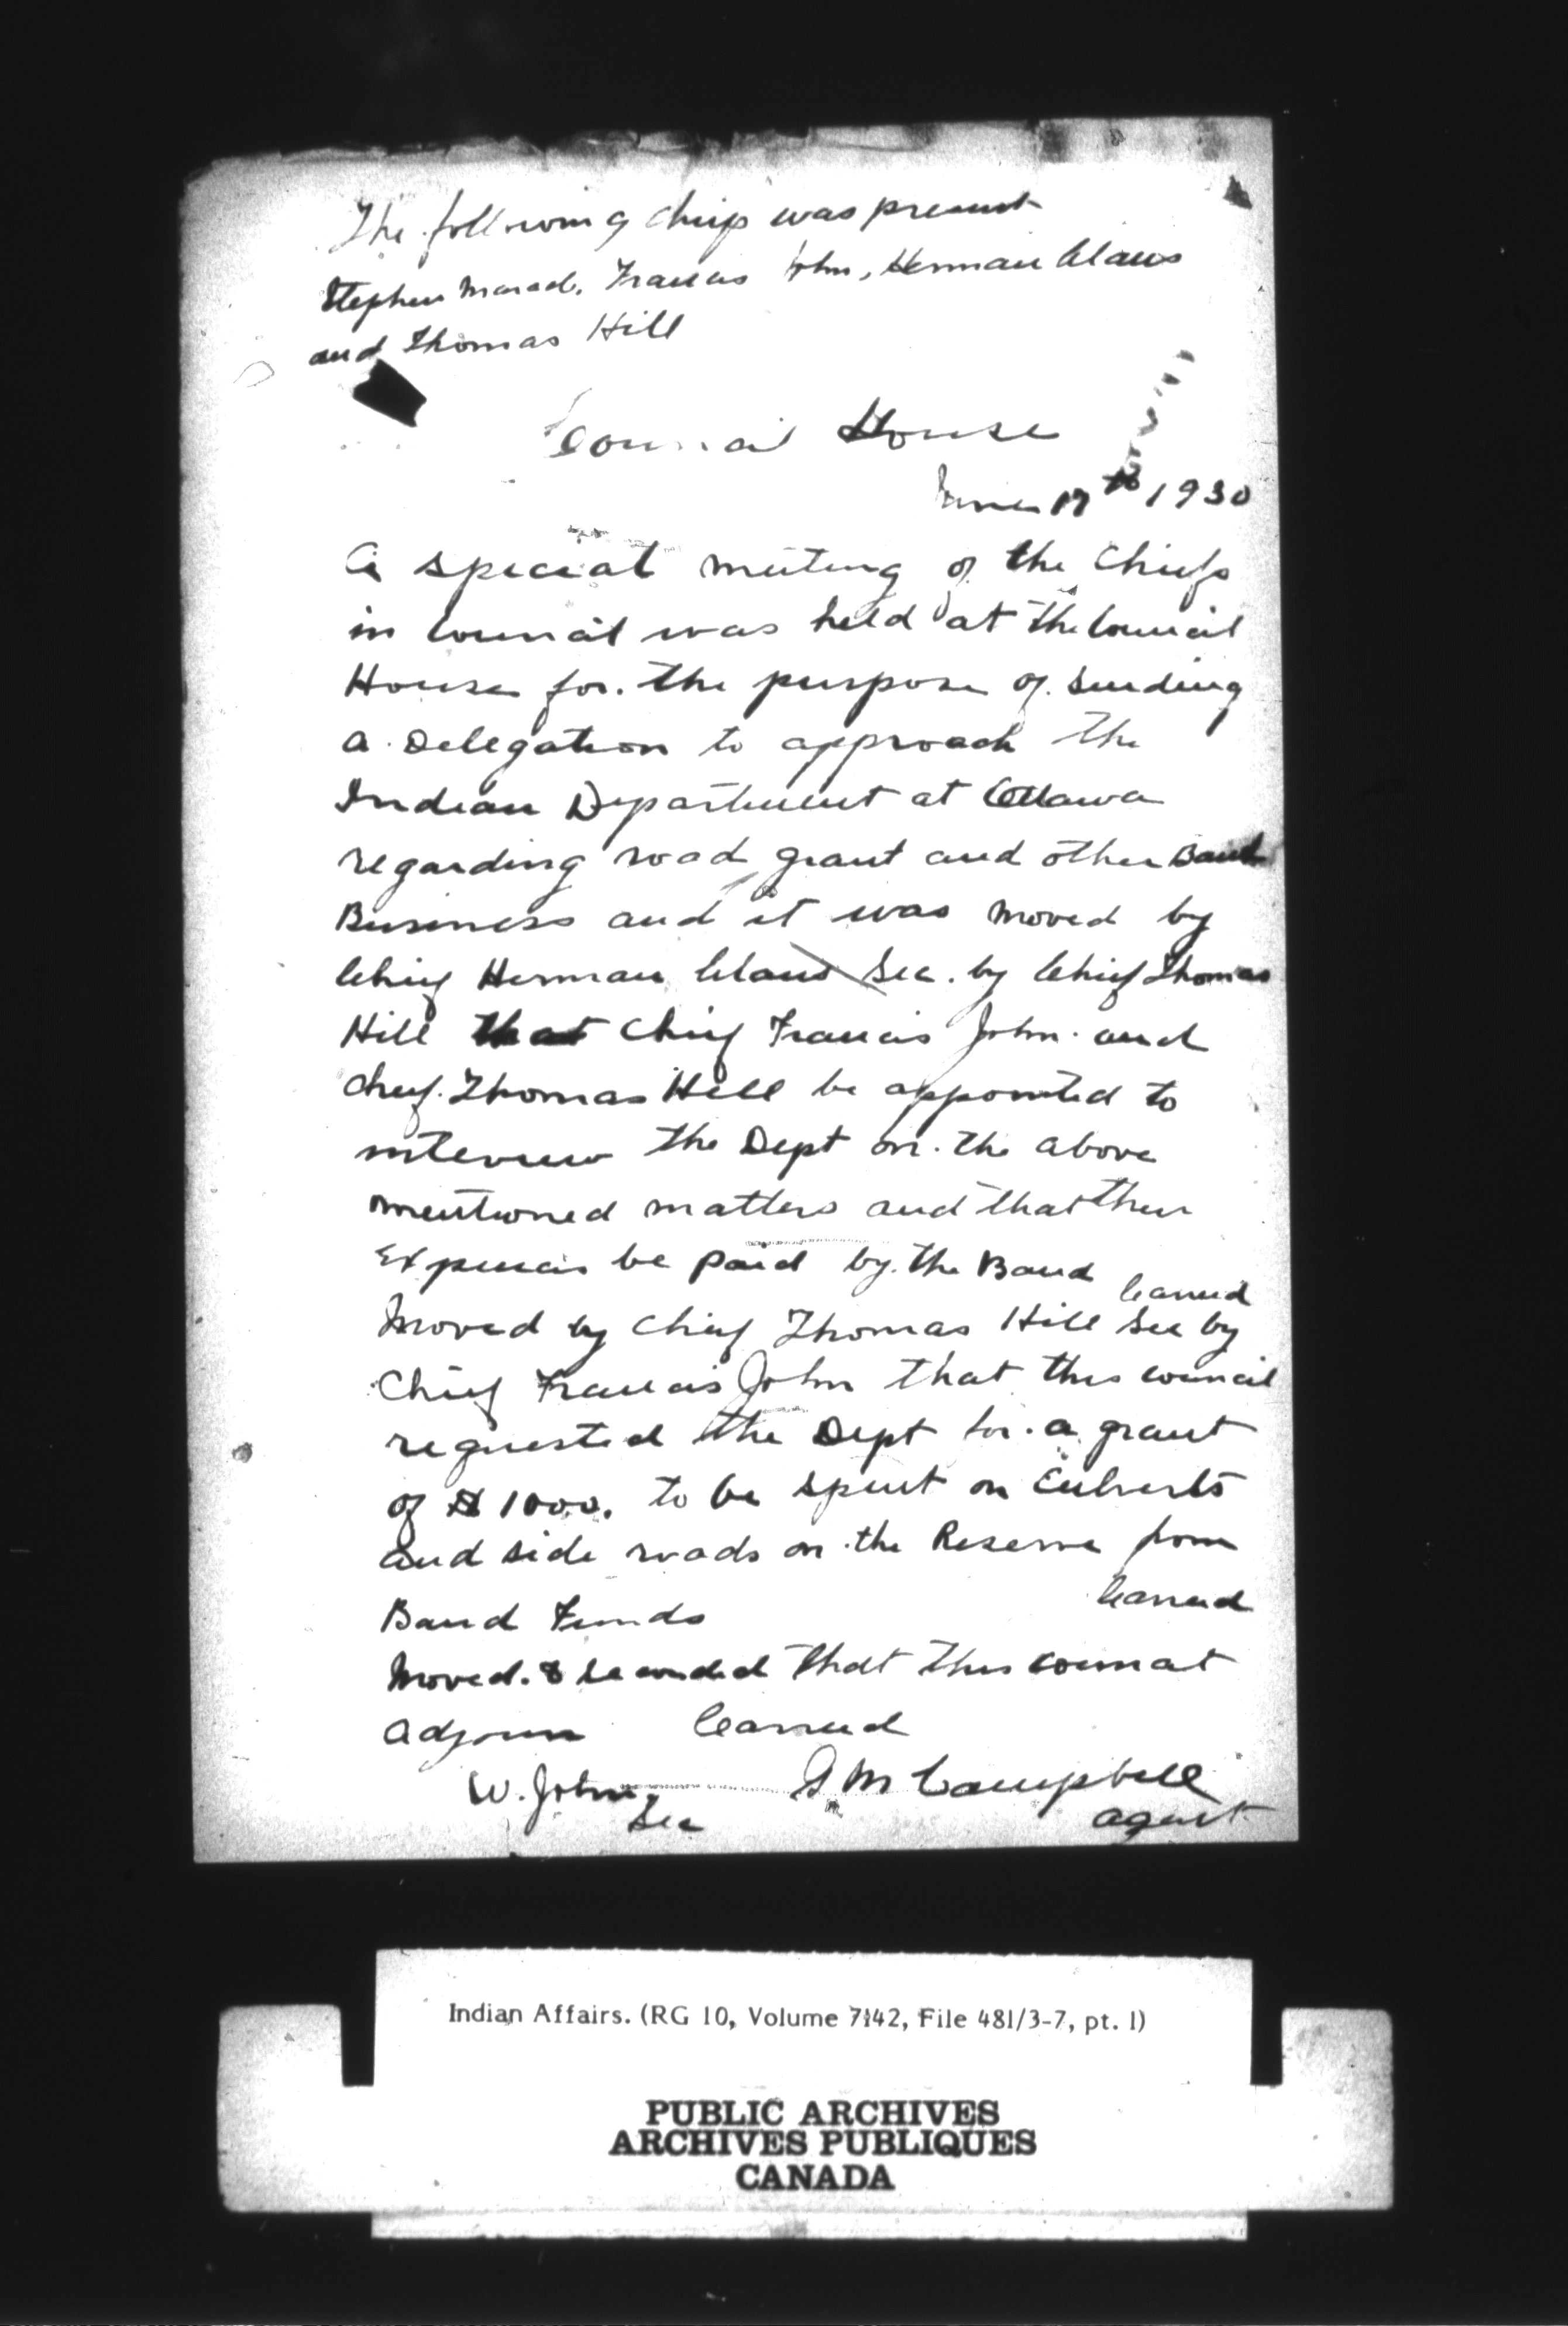 The following Chiefs was present
Stephen Maracle, Francis John, Herman Claus
and Thomas Hill
Council House
June 17th 1930
A special meeting of the Chiefs
in Council was held at the Council
House for the purpose of sending
a Delegation to approach the
Indian Department at Ottawa
regarding road grant and other Band
Business and it was moved by
Chief Herman Claus Sec. by Chief Thomas
Hill that Chief Francis John and
Chief Thomas Hill be appointed to
interview the Dept on the above
mentioned matters and that their
Expenses be paid by the Band
Carried
Moved by Chief Thomas Hill Sec by
Chief Francis John that this council
requested the Dept for a grant
of $1000. to be spent on Culverts
and side roads on the Reserve from
Band Funds Carried
Moved & seconded that this council
adjourn Carried
W. John G M Campbell
Sec agent
Indian Affairs. (RG 10, Volume 7142, File 481/3-7, pt. 1)
PUBLIC ARCHIVES
ARCHIVES PUBLIQUES
CANADA